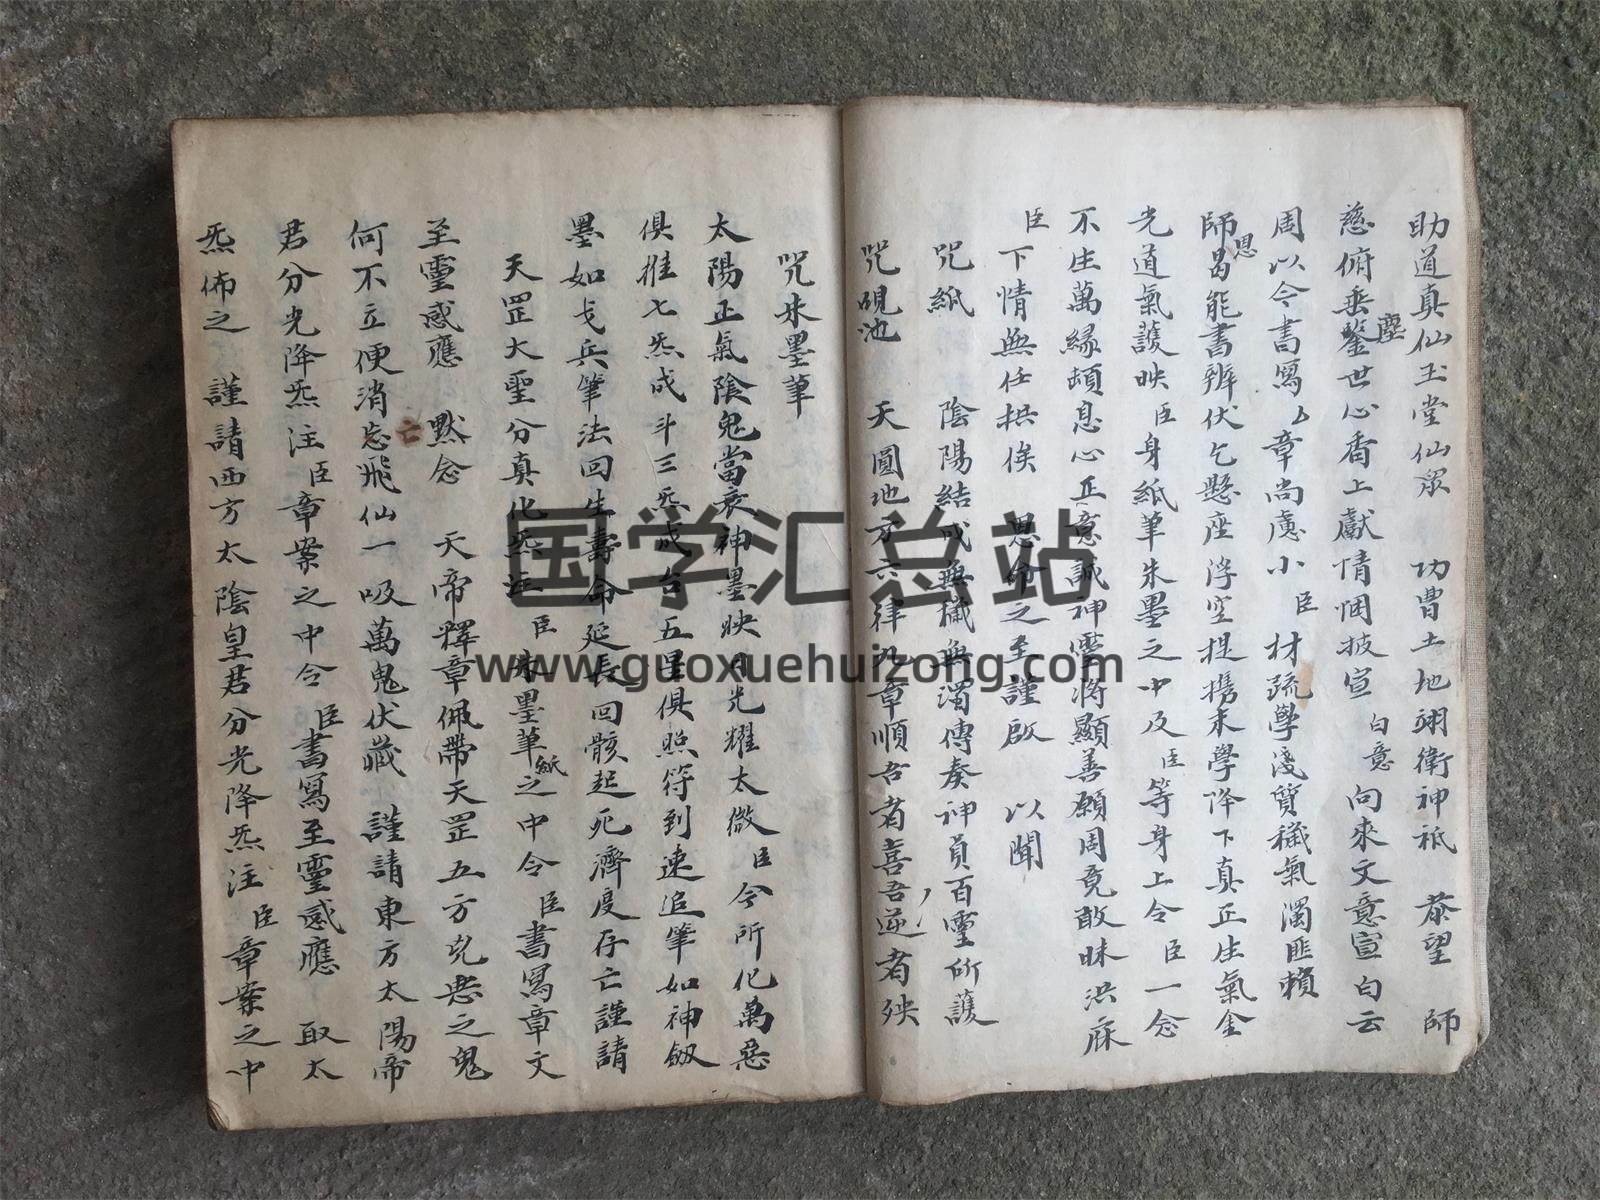 助道真仙玉堂仙眾 功曹土地翊衛神祇 恭望 師
慈俯垂鑒塵世心香上獻情悃披宣 白意 向來文意宣白云
周以今書寫厶章尚慮小臣 材疏學淺質穢氣濁匪賴
師恩曷能書辨伏乞懸座浮空提携末學降下真正生氣金
光道氣護映臣身紙筆朱墨之中及臣等身上令臣一念
不生萬緣頓息心正意誠神靈將顯善願周竟敢昧洪庥
臣下情無任拱俟 恩命之至謹啟 以聞
咒紙 陰陽結成無穢無濁傳奏神員百靈所護
咒硯池 天圓地方六律九章順吾者喜吾逆者殃
咒朱墨筆
太陽正氣陰鬼當衰神墨映日光耀太微臣今所化萬惡
俱摧七炁成斗三炁成台五星俱照符到速追筆如神劔
墨如戈兵筆法回生壽命延長回骸起死濟度存亡謹請
天罡大聖分真化炁 臣朱墨筆紙之中令臣書寫章文
至靈感應 默念 天帝釋章佩帶天罡五方兇惡之鬼
何不立便消忘亡飛仙一吸萬鬼伏藏 謹請東方太陽帝
君分光降炁注臣章案之中令臣書寫至靈感應 取太
炁佈之 謹請西方太陰皇君分光降炁注臣章案之中
国学汇总站
www.guoxuehuizong.com